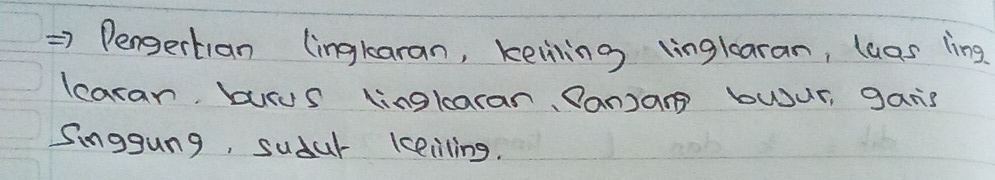 ⇒ Pengertian lingkaran, keliling lingkaran, luas ling
karan. busus lingkaran, Panjang busur, garis
Singgung, sudut keliling.